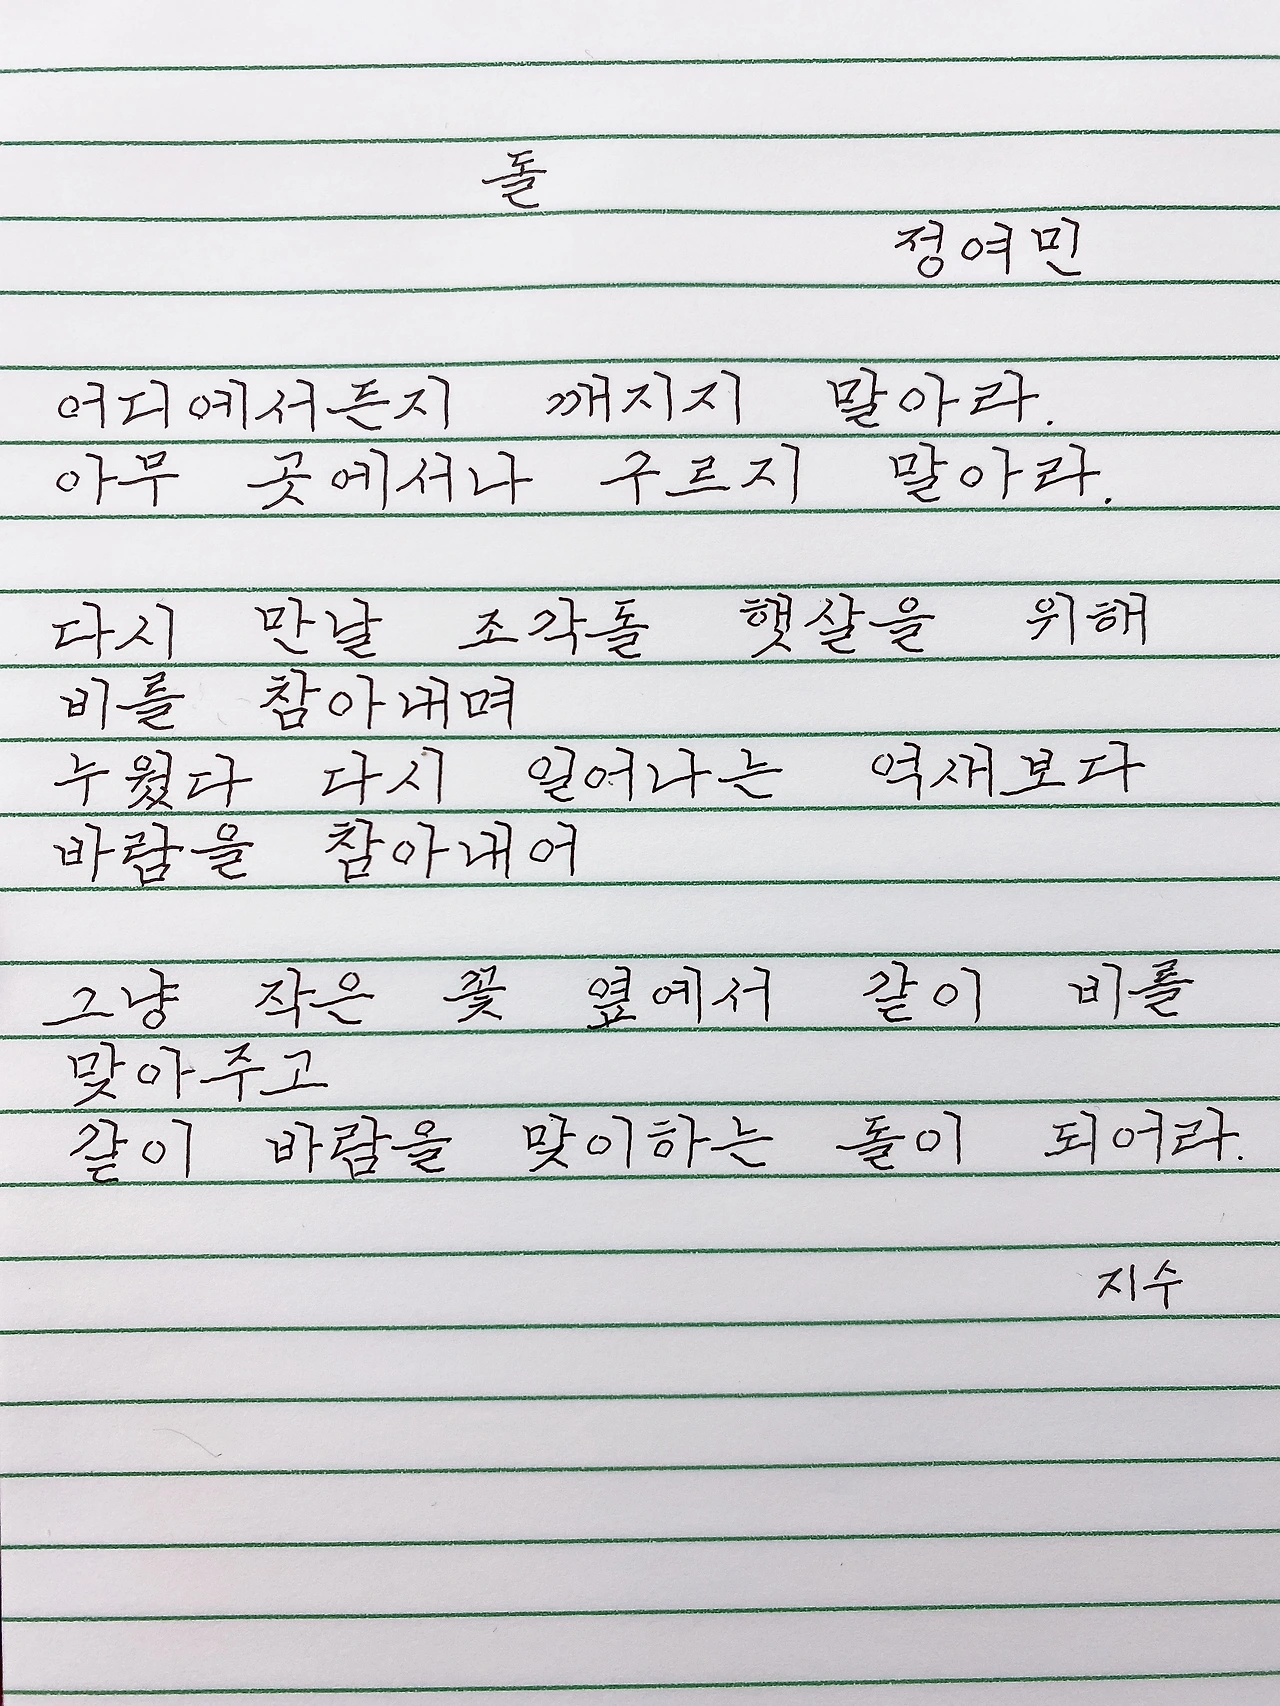 돌
정여민
어디에서든지 깨지지 말아라.
아무 곳에서나 구르지 말아라.
다시 만날 조각돌 햇살을 위해
비를 참아내며
누웠다 다시 일어나는 억새보다
바람을 참아내어
그냥 작은 꽃 옆에서 같이 비를
맞아주고
같이 바람을 맞이하는 돌이 되어라.
지수